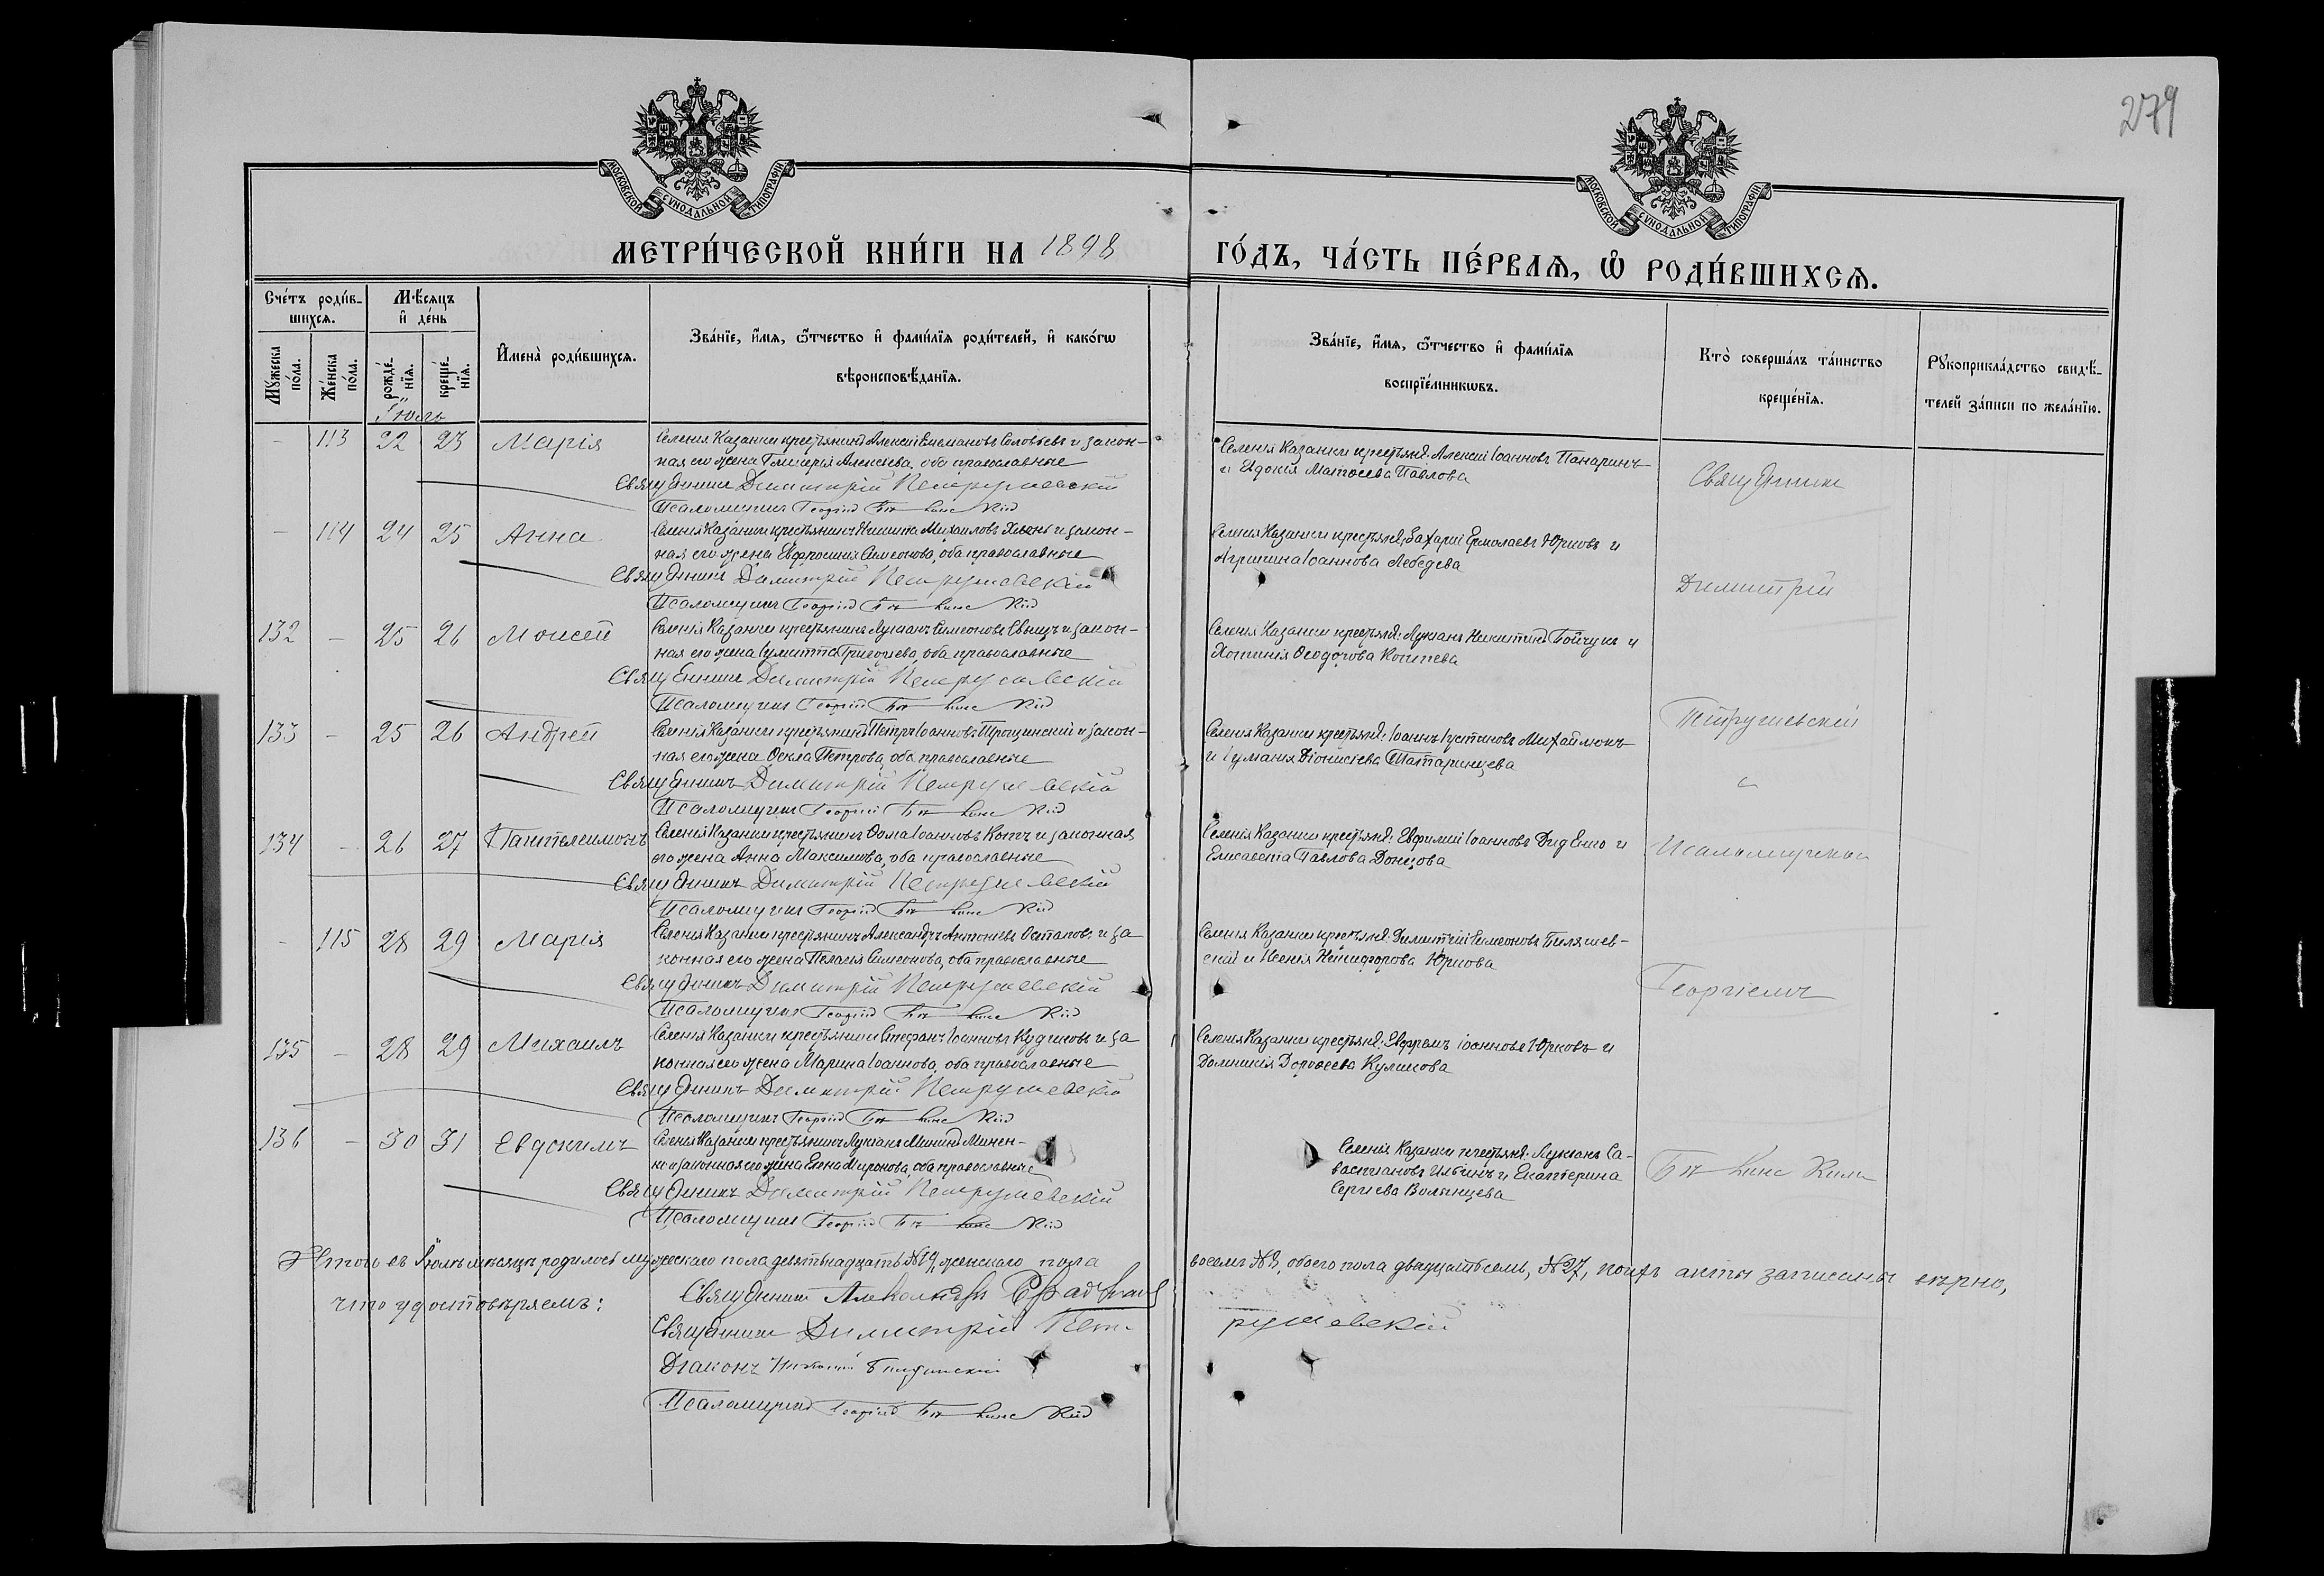 279
МОСКОВСКОЙ СѴНОДАЛЬНОЙ ТИПОГРАФІИ
МОСКОВСКОЙ СѴНОДАЛЬНОЙ ТИПОГРАФІИ
МЕТРИ́ЧЕСКОЙ КНИ́ГИ НА 1898 ГО́ДЪ, ЧА́СТЬ ПЕ́РВАѦ, Ѽ РОДИ́ВШИХСѦ.
Сче́тъ роди́в-
шихсѧ.
Мꙋ́жеска по́ла.
Же́нска по́ла.
Мѣ́сѧцъ
и҆ де́нь
рожде́-нїѧ.
креще́-нїѧ.
И҆мена̀ роди́вшихсѧ.
Зва́нїе, и҆́мѧ, ѻ҆́тчество и҆ фами́лїѧ роди́телей, и҆ како́гѡ
вѣроисповѣ́данїѧ.
Зва́нїе, и҆́мѧ, ѻ҆́тчество и҆ фами́лїѧ
воспрїе́мникѡвъ.
Кто̀ соверша́лъ та́инство
креще́нїѧ.
Рꙋкоприкла́дство свидѣ́-
телей за́писи по жела́нїю.
Іюль
- 113 22 23 Марія
Селенія Казанки крестьянинъ Алексій Соловьевъ и закон-
ная его жена Гликерія Алексѣева, оба православные
Священникъ Димитрій Петрушевскій
Псаломщикъ Георгій
Селенія Казанки крестьян: Алексій Іоанновъ Панаринъ
и Евдокія Матѳеева Павлова
Священник
- 114 24 25 Анна
Селенія Казанки крестьянинъ Никита Михаиловъ и закон-
ная его жена Евфросинія Симеонова, оба православные
Священникъ Димитрій Петрушевскій
Псаломщикъ Георгій
Селенія Казанки крестьян: Захарій Ермолаевъ Юрковъ и
Агрипина Іоаннова Лебедева
Димитрій
132 - 25 26 Моисей
Селенія Казанки крестьянинъ Лукіанъ Симеоновъ и закон-
ная его жена Іулитта Григорьева, оба православные
Священникъ Димитрій Петрушевскій
Псаломщикъ Георгій
Селенія Казанки крестьян: Лукіанъ Никитинъ Бойчукъ и
Хотинія Ѳеодорова
Петрушевскій
133 - 25 26 Андрей
Селенія Казанки крестьянинъ Петръ Іоанновъ Трощинскій и закон-
ная его жена Ѳекла Петрова, оба православные
Священникъ Димитрій Петрушевскій
Псаломщикъ Георгій
Селенія Казанки крестьян: Іоаннъ Іустиновъ Михайлюкъ
и Іуліанія Діонисіева Татаринцева
с
134 - 26 27 Пантелеимонъ
Селенія Казанки крестьянинъ Ѳома Іоанновъ Котъ и законная
его жена Анна Максимова, оба православные
Священникъ Димитрій Петрушевскій
Псаломщикъ Георгій
Селенія Казанки крестьян: Евфимій Іоанновъ Диденко и
Елисавета Павлова Донцова
Псаломщиком
- 115 28 29 Марія
Селенія Казанки крестьянинъ Александръ Антоніевъ Остаповъ и за
конная его жена Пелагія Симеонова, оба православные
Священникъ Димитрій Петрушевскій
Псаломщикъ Георгій
Селенія Казанки крестьян: Димитрій Симеоновъ Билязев-
скій и Ксенія Никифорова Юркова
Георгіемъ
135 - 28 29 Михаилъ
Селенія Казанки крестьянинъ Стефанъ Іоанновъ Кудиновъ и за
конная его жена Марина Іоаннова, оба православные
Священникъ Димитрій Петрушевскій
Псаломщикъ Георгій
Селенія Казанки крестьян: Ефремъ Іоанновъ Юрковъ и
Домникія Дороѳеева Куликова
136 - 30 31 Евдокимъ
Селенія Казанки крестьянинъ Лукіанъ Мининъ Минен-
ко и законная его жена Елена Миронова, оба православные
Священникъ Димитрій Петрушевскій
Псаломщикъ Георгій
Селенія Казанки крестьян: Лукіанъ Са-
вастіановъ Ильинъ и Екатерина
Сергіева Волынцева
Итого въ Іюлѣ мѣсяцѣ родилось мужескаго пола девятнадцать №19, женскаго пола восемь №8, обоего пола двадцать семь, №27, коихъ акты записаны вѣрно,
что удостовѣряемъ:
Священникъ Александръ
Священникъ Димитрій Петрушевскій
Діаконъ
Псаломщикъ Георгій